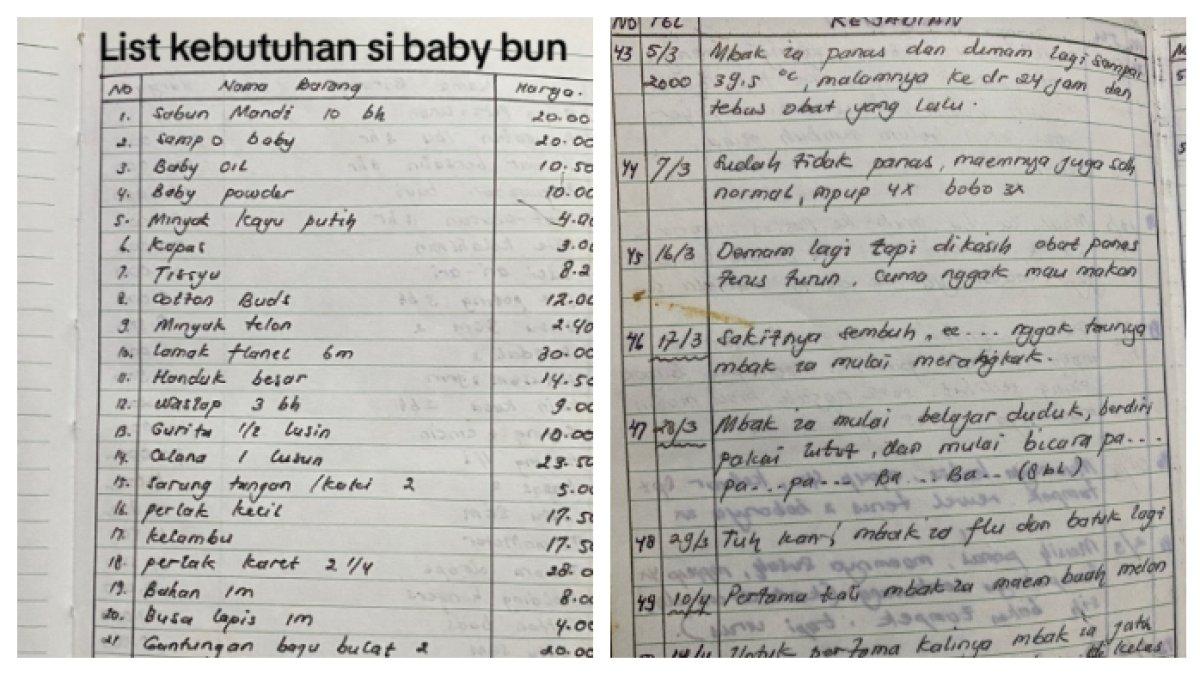 List kebutuhan si baby bun
No Nama Barang Harga.
1. Sabun Mandi 10 bh 20.00
2. Sampo baby 20.00
3. Baby OIL 10.50
4. Baby powder 10.00
5. Minyak kayu putih 4.00
6. Kapas 3.00
7. Tissyu 8.2
8. Cotton Buds 12.00
9. Minyak telon 2.40
10. Lamak flanel 6m 30.00
11. Handuk besar 14.50
12. Waslap 3 bh 9.00
13. Gurita 1/2 lusin 10.00
14. Celana 1 lusin 23.50
15. Sarung tangan /kaki 2 5.00
16. perlak kecil 17.50
17. kelambu 17.50
18. perlak karet 2 1/4 28.0
19. Bahan 1m 8.00
20. Busa lapis 1m 4.00
21 Gantungan baju bulat 2 20.00
NO TGL KEJADIAN
43 5/3 Mbak za panas dan demam lagi sampai
2000 39.5 °C, malamnya ke dr 24 jam dan
tebus obat yang lalu.
44 7/3 Sudah tidak panas, maemnya juga sdh
normal, mpup 4x bobo 3x
45 16/3 Demam lagi tapi dikasih obat panas
terus turun, cuma nggak mau makan
46 17/3 Sakitnya sembuh, ee... nggak taunya
mbak za mulai merangkak.
47 28/3 Mbak za mulai belajar duduk, berdiri
pakai lutut, dan mulai bicara pa...
pa...pa... Ba...Ba... (8 bl)
48 29/3 Tuh kan! mbak za flu dan batuk lagi
49 10/4 Pertama kali mbak za maem buah melon
14/4 Untuk pertama kalinya mbak za jatu
di kelas